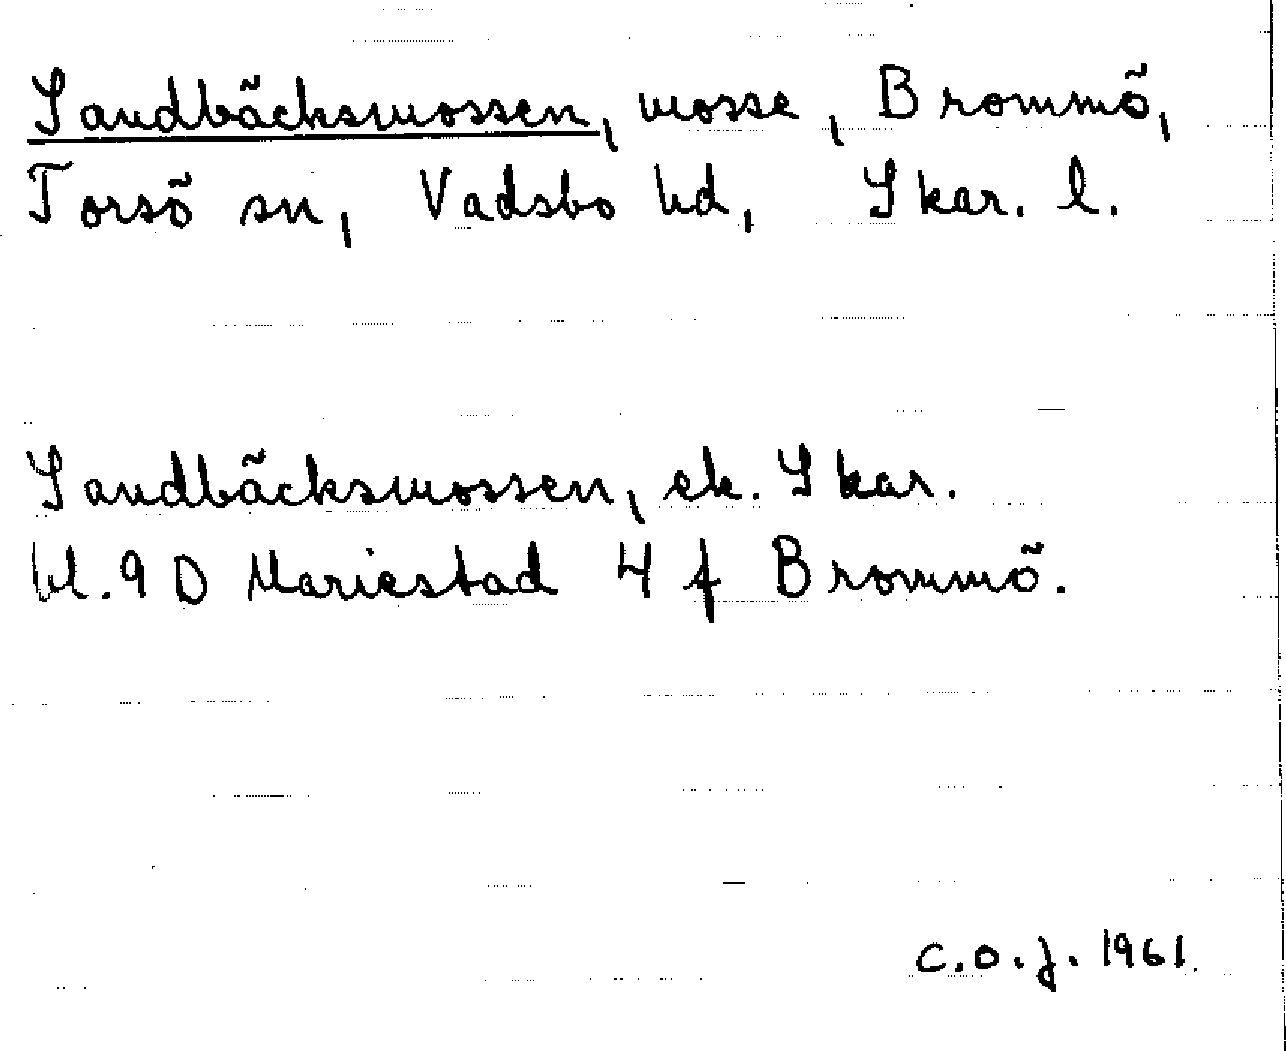 Sandbäcksmossen, mosse, Brommö,
Torsö sn, Vadsbo hd, Skar. l.
Sandbäcksmossen, ek. Skar.
bl. 9 D Mariestad 4 f Brommö.
C.O.J. 1961.